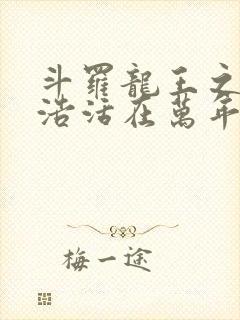 斗羅龍王之
浩活在萬年
梅一途